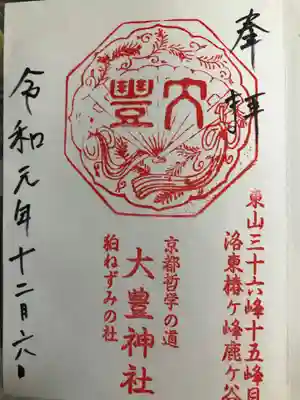 奉拝
大豐
東山三十六峰十五峰目
洛東椿ヶ峰鹿ヶ谷
京都哲学の道
大豊神社
狛ねずみの社
令和元年十二月六日